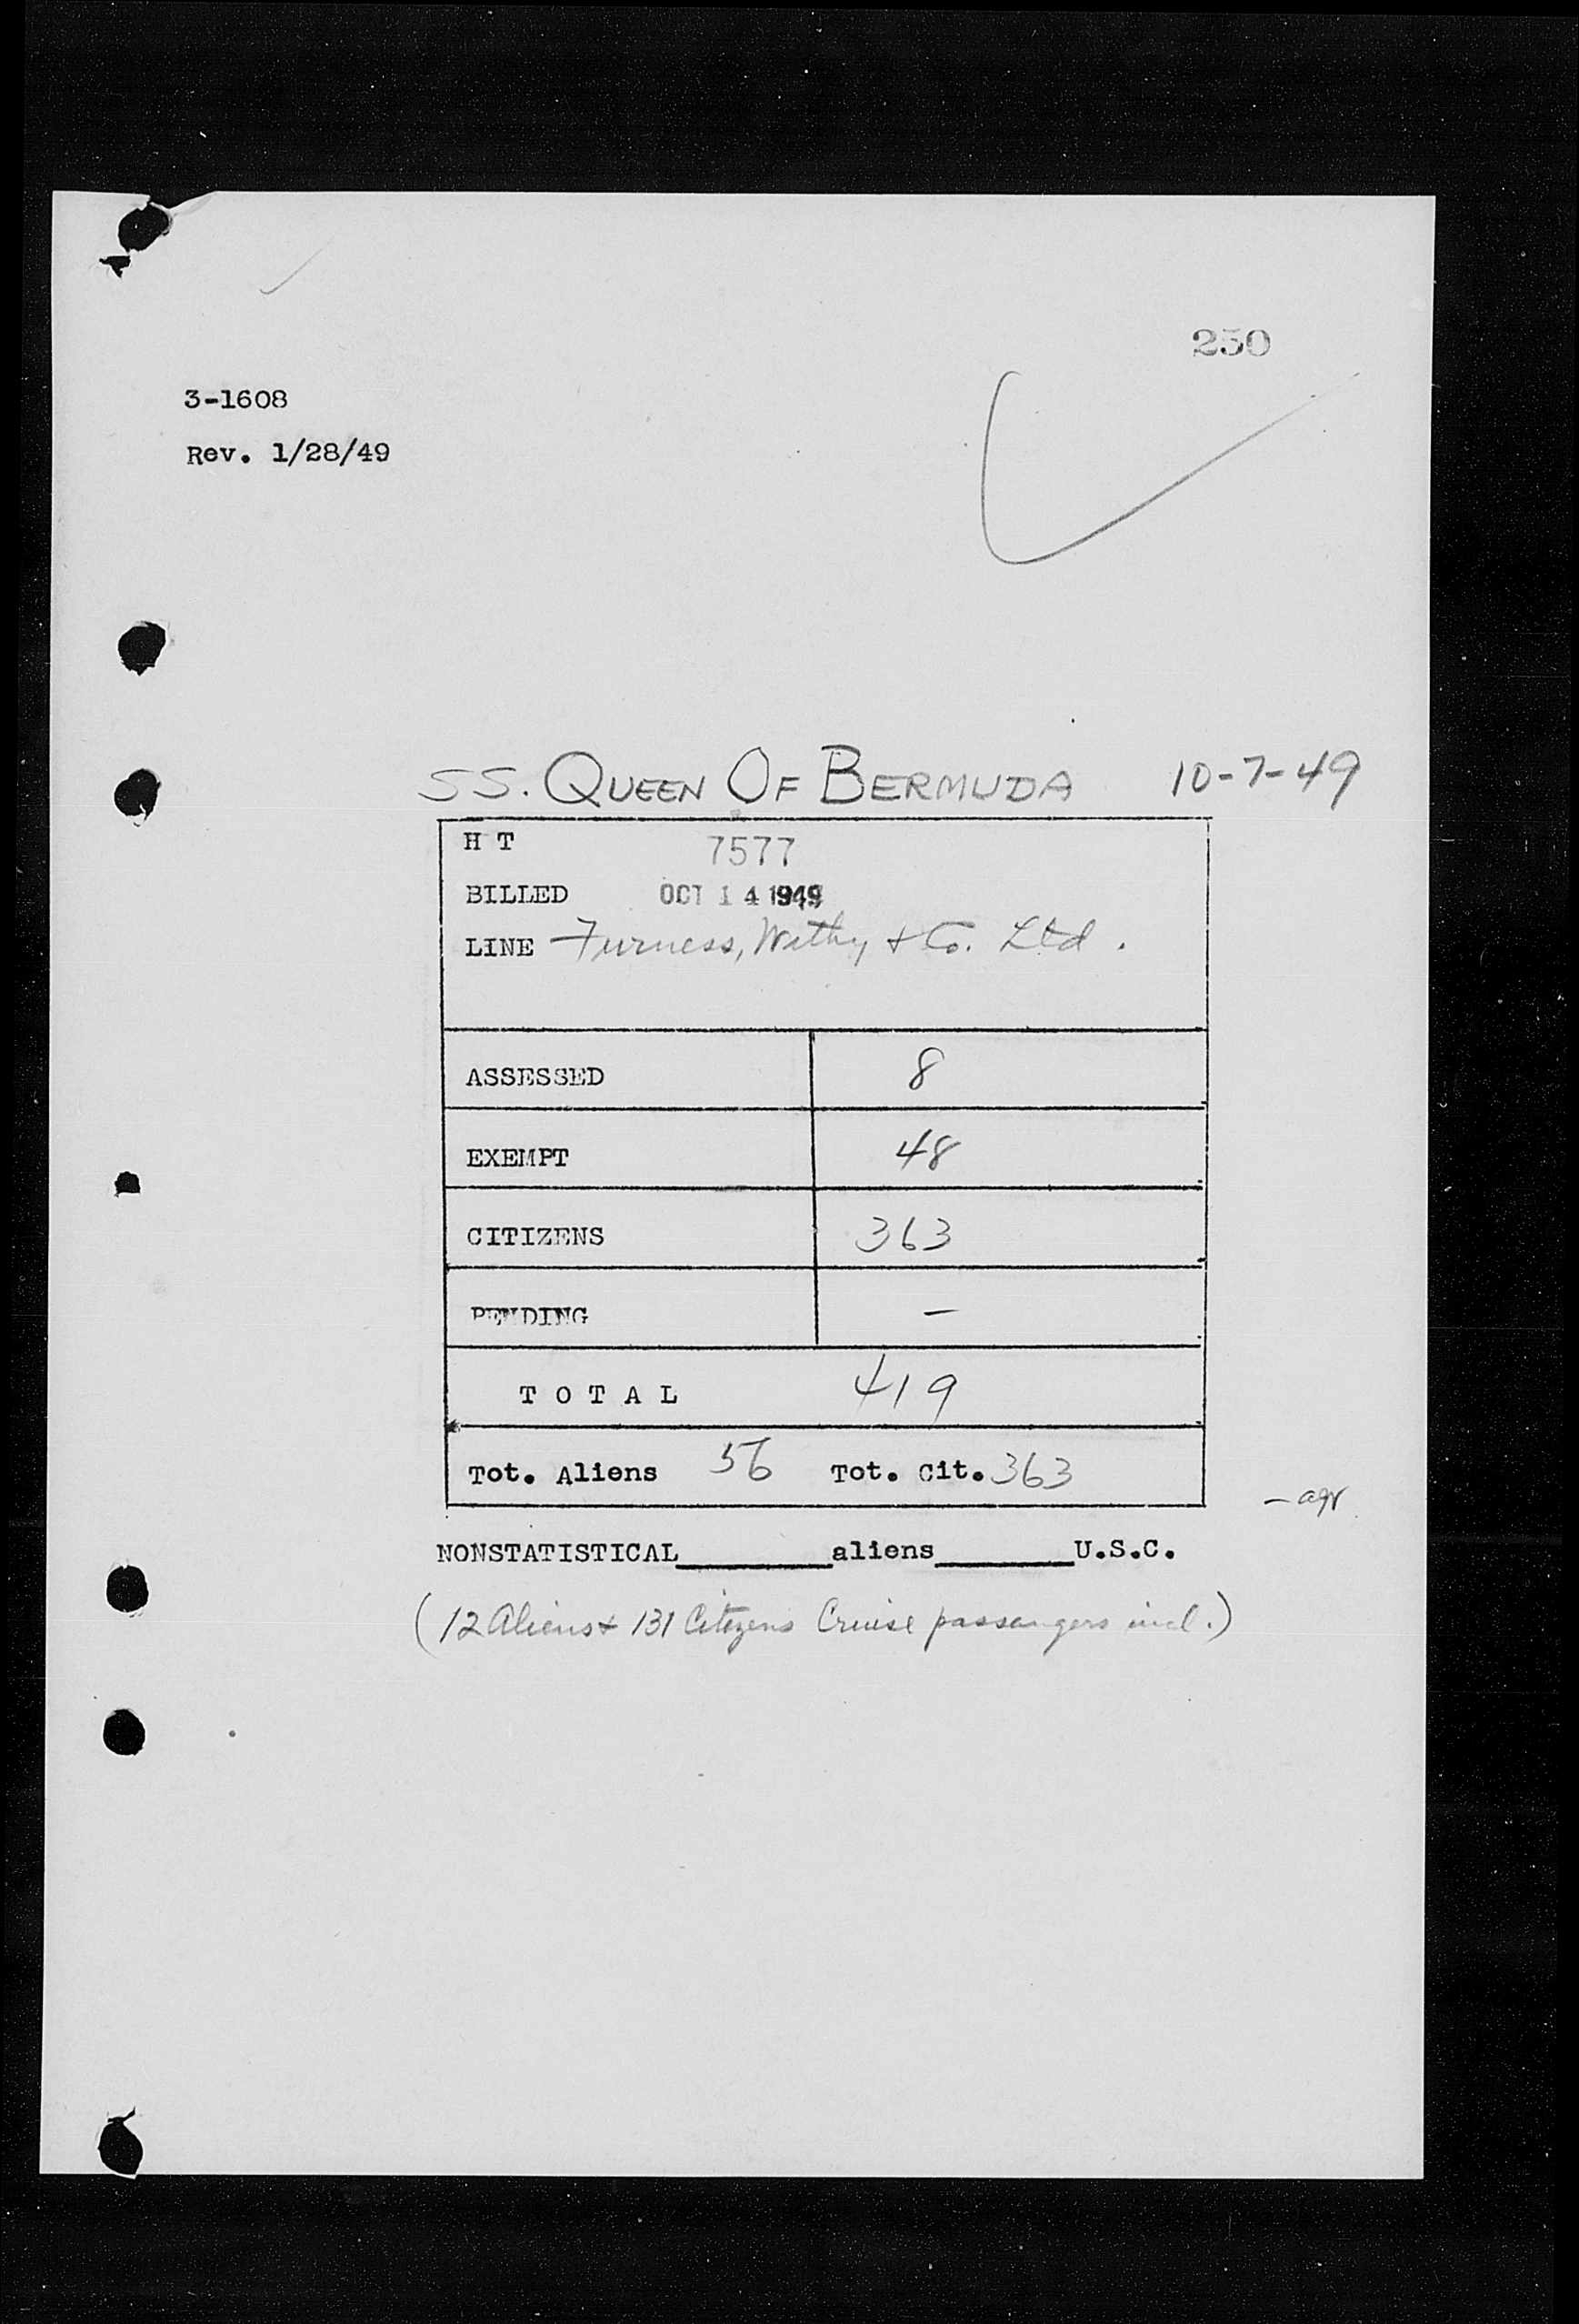 250
3-1608
Rev. 1/28/49
SS. QUEEN OF BERMUDA 10-7-49
H T 7577
BILLED OCT 14 1949
LINE Furness, Withy & Co. Ltd.
ASSESSED 8
EXEMPT 48
CITIZENS 363
PENDING –
TOTAL 419
Tot. Aliens 56 Tot. Cit. 363
NONSTATISTICAL________aliens________U.S.C.
(12 Aliens & 131 Citizens Cruise passengers incl.)